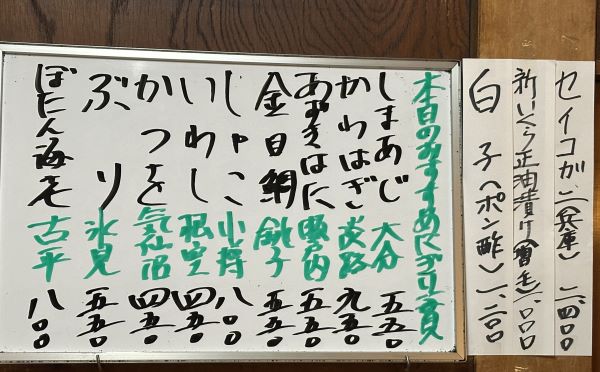 セイコガニ(兵庫) 二、四〇〇
新いくら正油漬け(増毛)一、〇〇〇
白子(ポン酢) 一、二〇〇
本日のおすすめにぎり一貫
しまあじ 大分 五五〇
かわはぎ 淡路 九五〇
あおきはた 瀬戸内 五五〇
金目鯛 銚子 五五〇
しゃこ 小樽 八〇〇
いわし 根室 四五〇
かつを 気仙沼 四五〇
ぶり 氷見 五五〇
ぼたん海老 古平 八〇〇